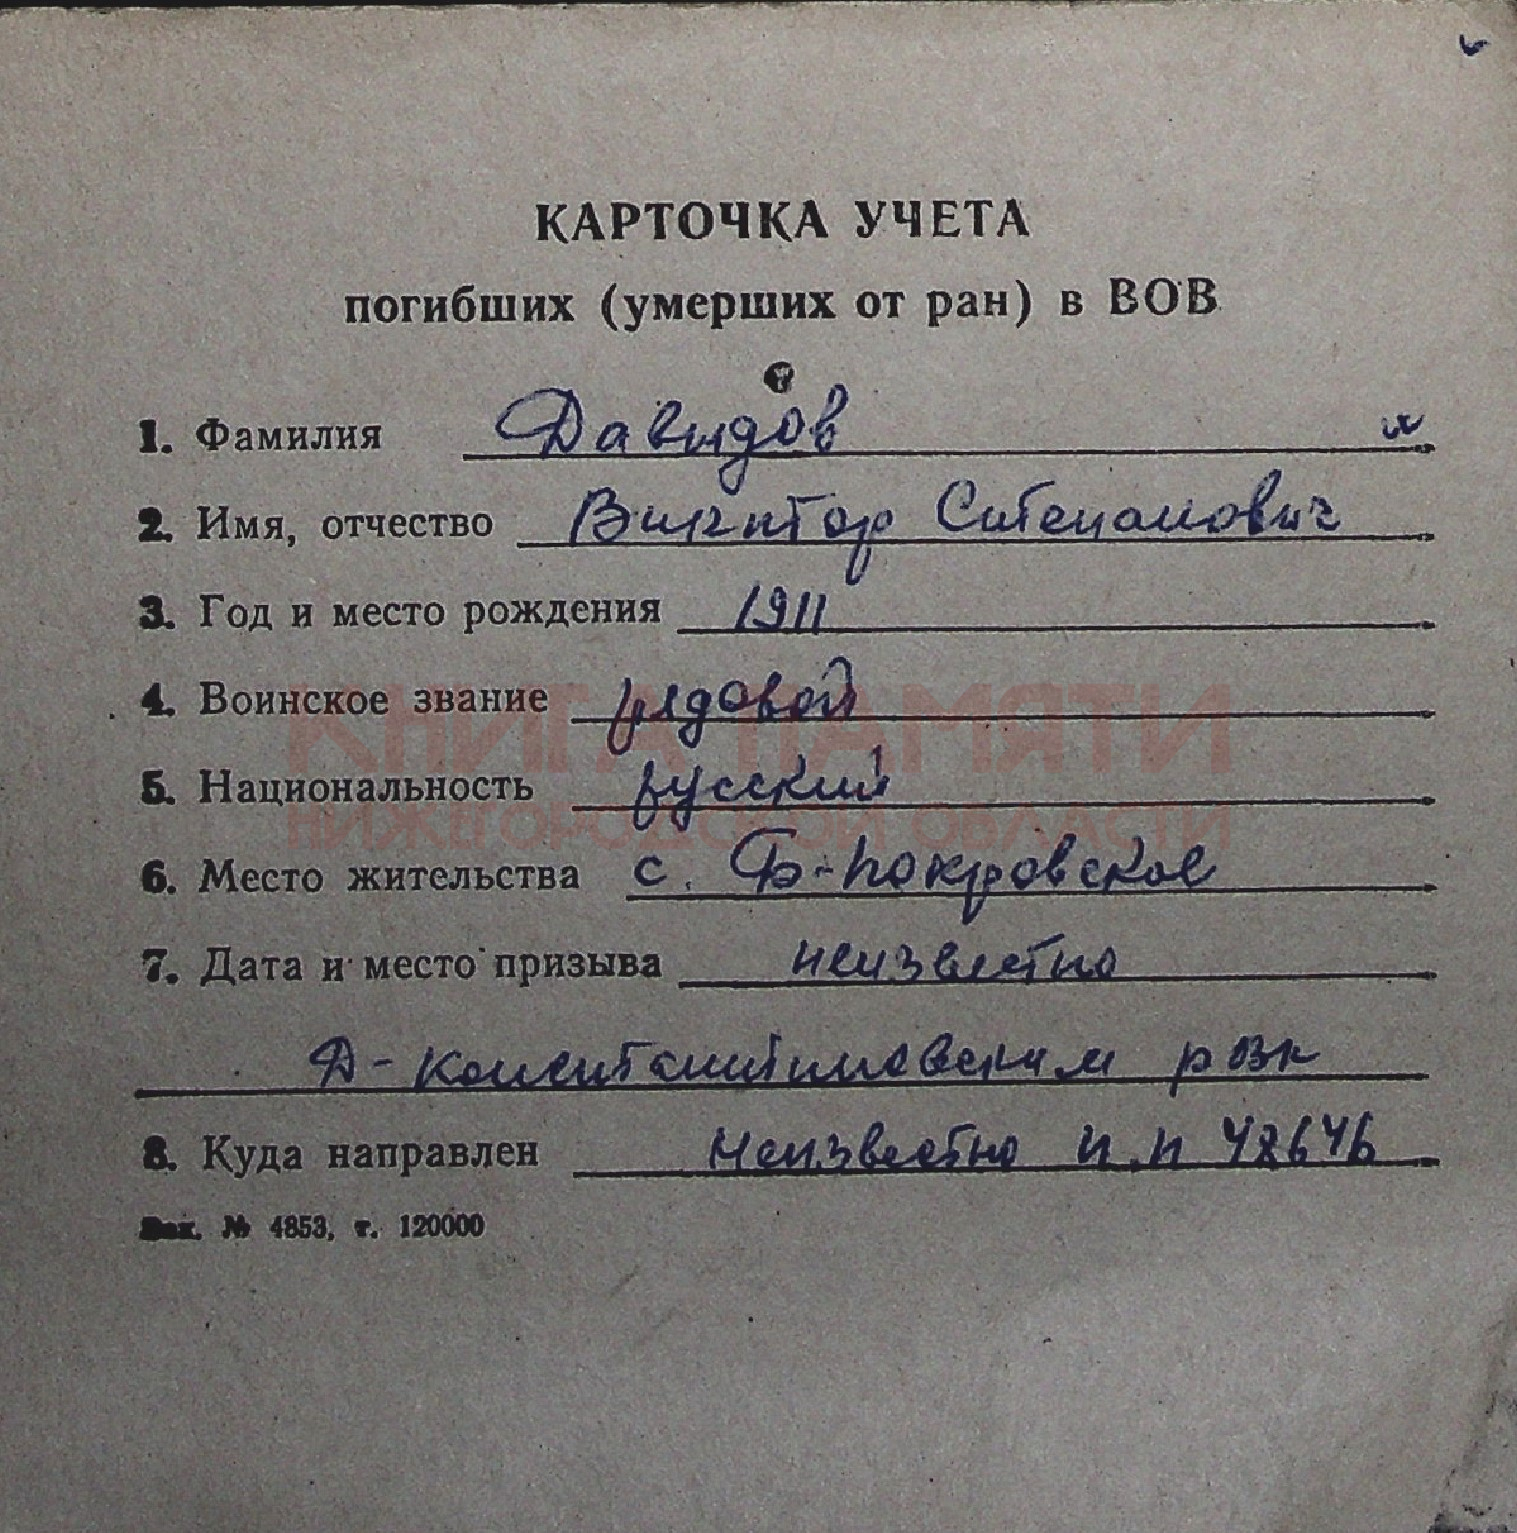 КАРТОЧКА УЧЕТА
погибших (умерших от ран) в ВОВ
1. Фамилия Давыдов
2. Имя, отчество Виктор Степанович
3. Год и место рождения 1911
4. Воинское звание рядовой
КНИГА ПАМЯТИ
5. Национальность русский
НИЖЕГОРОДСКОЙ ОБЛАСТИ
6. Место жительства с. Б-Покровское
7. Дата и место призыва неизвестно
Д-Константиновским рвк
8. Куда направлен неизвестно п.п 42646
Зак. № 4853, т. 120000